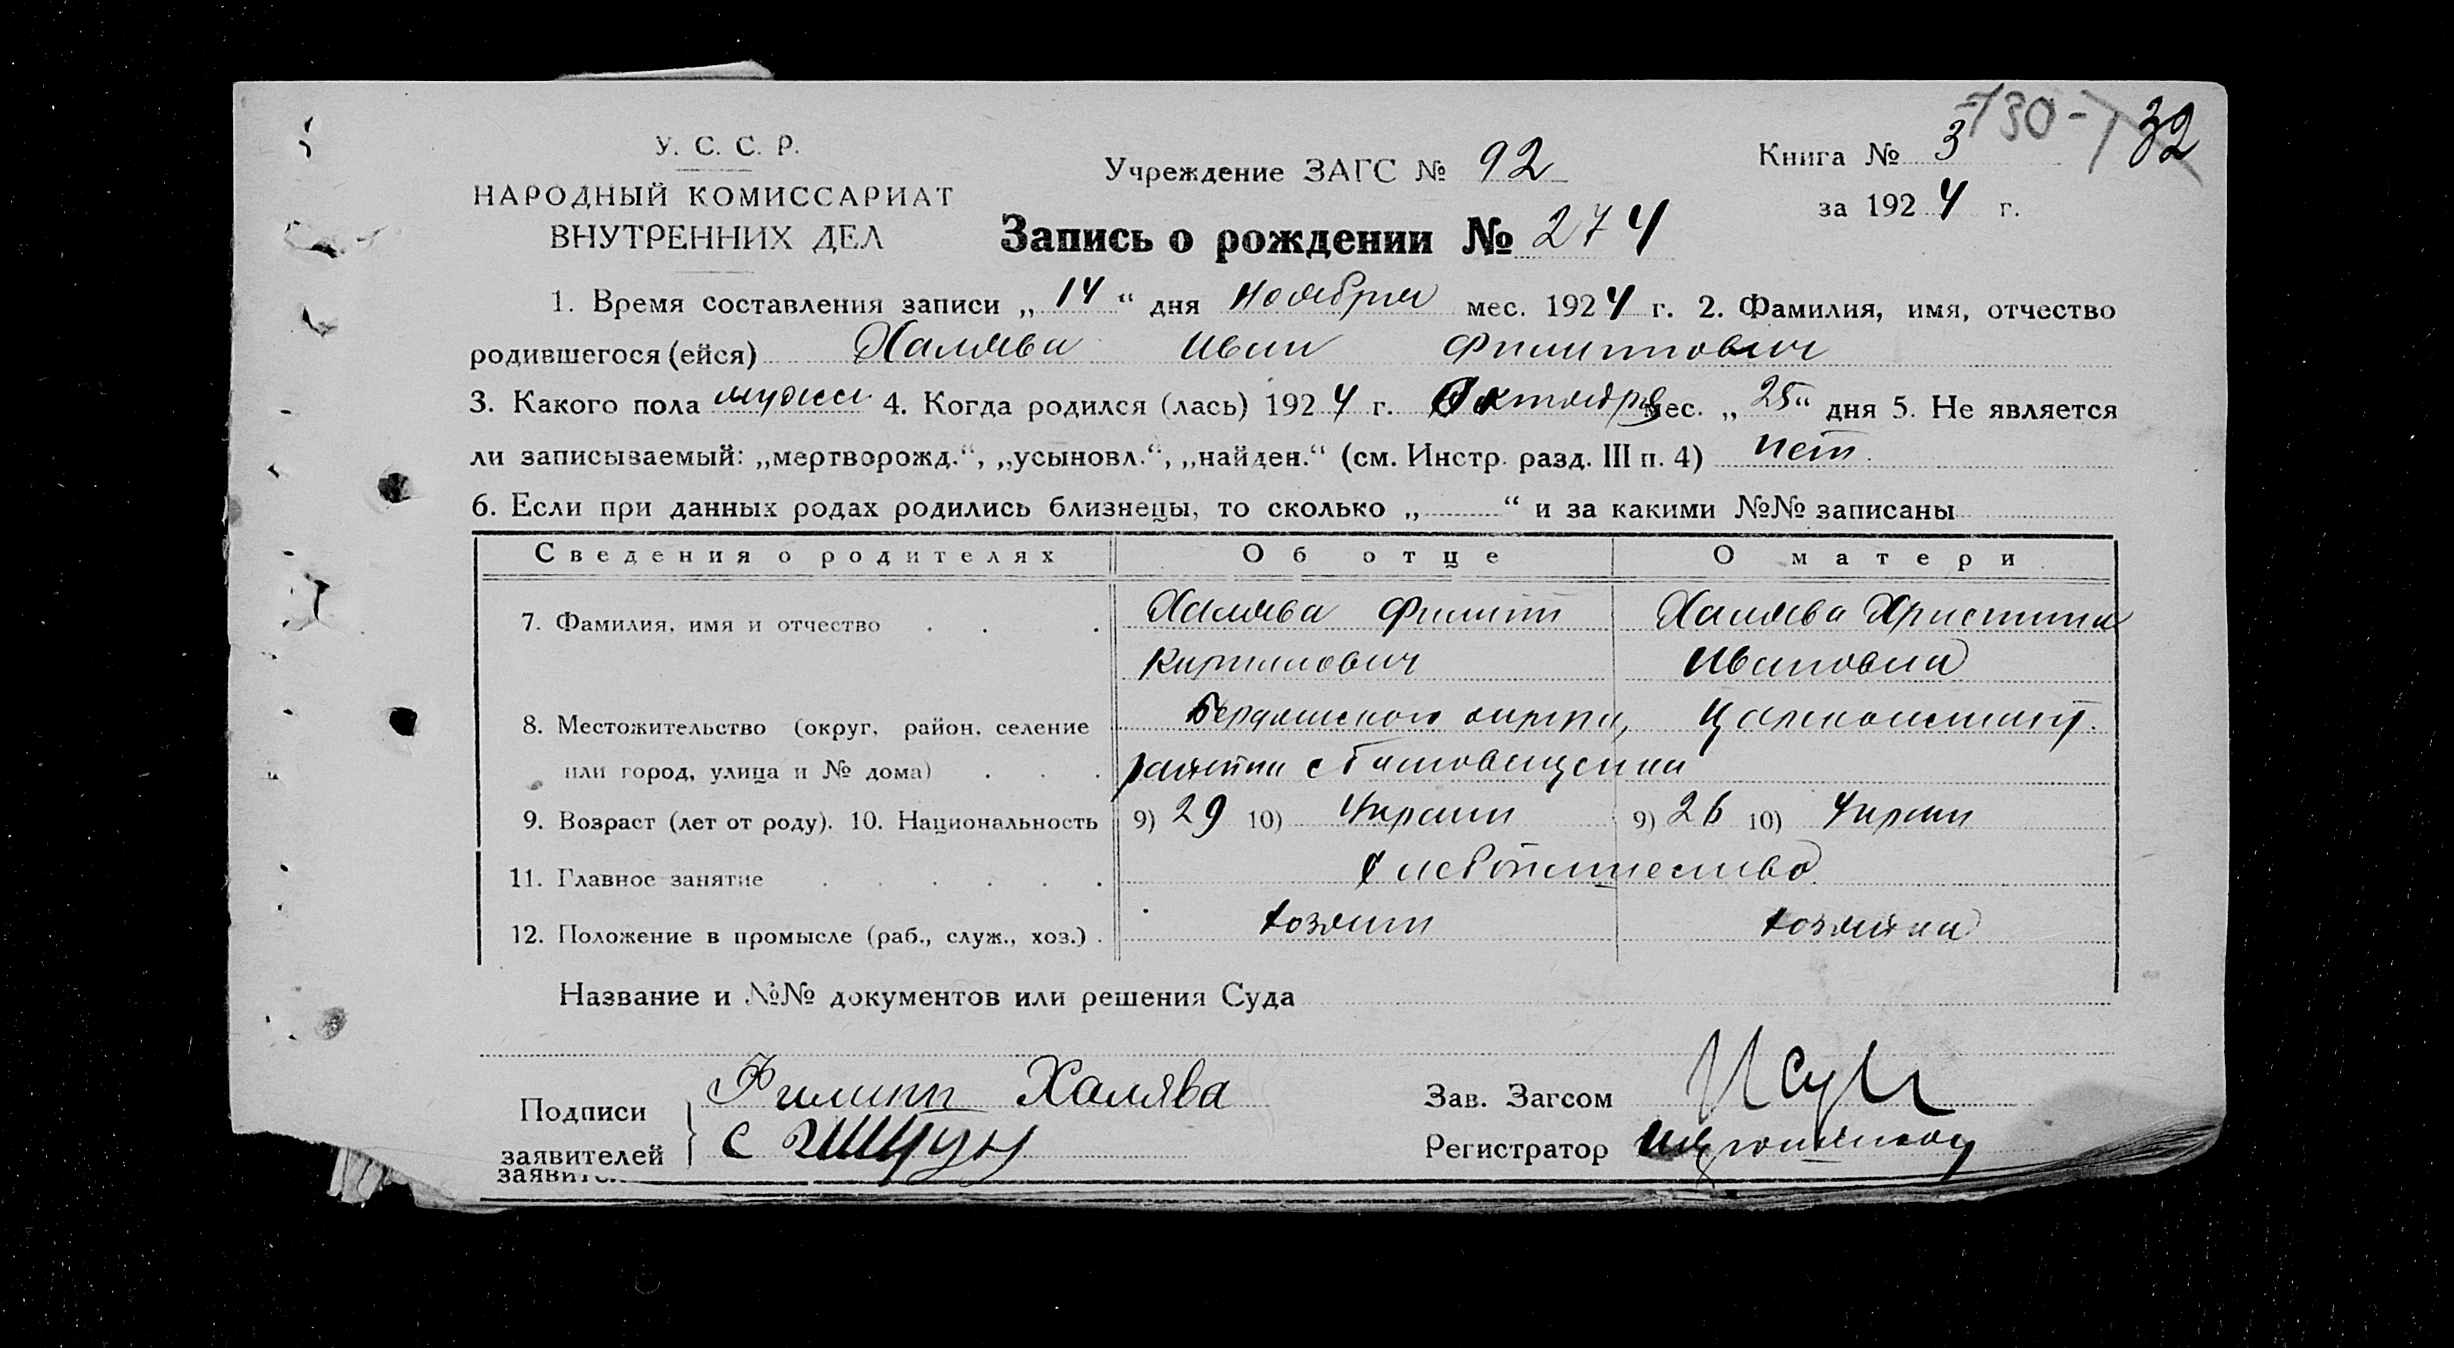 -130-1 32
У. С. С. Р.
НАРОДНЫЙ КОМИССАРИАТ
ВНУТРЕННИХ ДЕЛ
Учреждение ЗАГС № 92
Книга № 3
за 1924 г.
Запись о рождении № 274
1. Время составления записи „ 14 “ дня ноября мес. 1924 г. 2. Фамилия, имя, отчество
родившегося (ейся) Халява Иван Филиппович
3. Какого пола мужск 4. Когда родился (лась) 1924 г. Октября мес. „ 25 “ дня 5. Не является
ли записываемый: „мертворожд.“, „усыновл.“, „найден.“ (см. Инстр. разд. III п. 4) нет
6. Если при данных родах родились близнецы, то сколько „ “ и за какими №№ записаны
Сведения о родителях Об отце О матери
7. Фамилия, имя и отчество Халява Филипп Халява Христина
Кирилович Ивановна
8. Местожительство (округ, район, селение Бердянского округа, Царконстант.
или город, улица и № дома) района с Благовещенка
9. Возраст (лет от роду). 10. Национальность 9) 29 10) Украин 9) 26 10) Украин
11. Главное занятие хлебопашество
12. Положение в промысле (раб., служ., хоз.) хозяин хозяйка
Название и №№ документов или решения Суда
Подписи
заявителей
Филипп Халява
Зав. Загсом
Регистратор